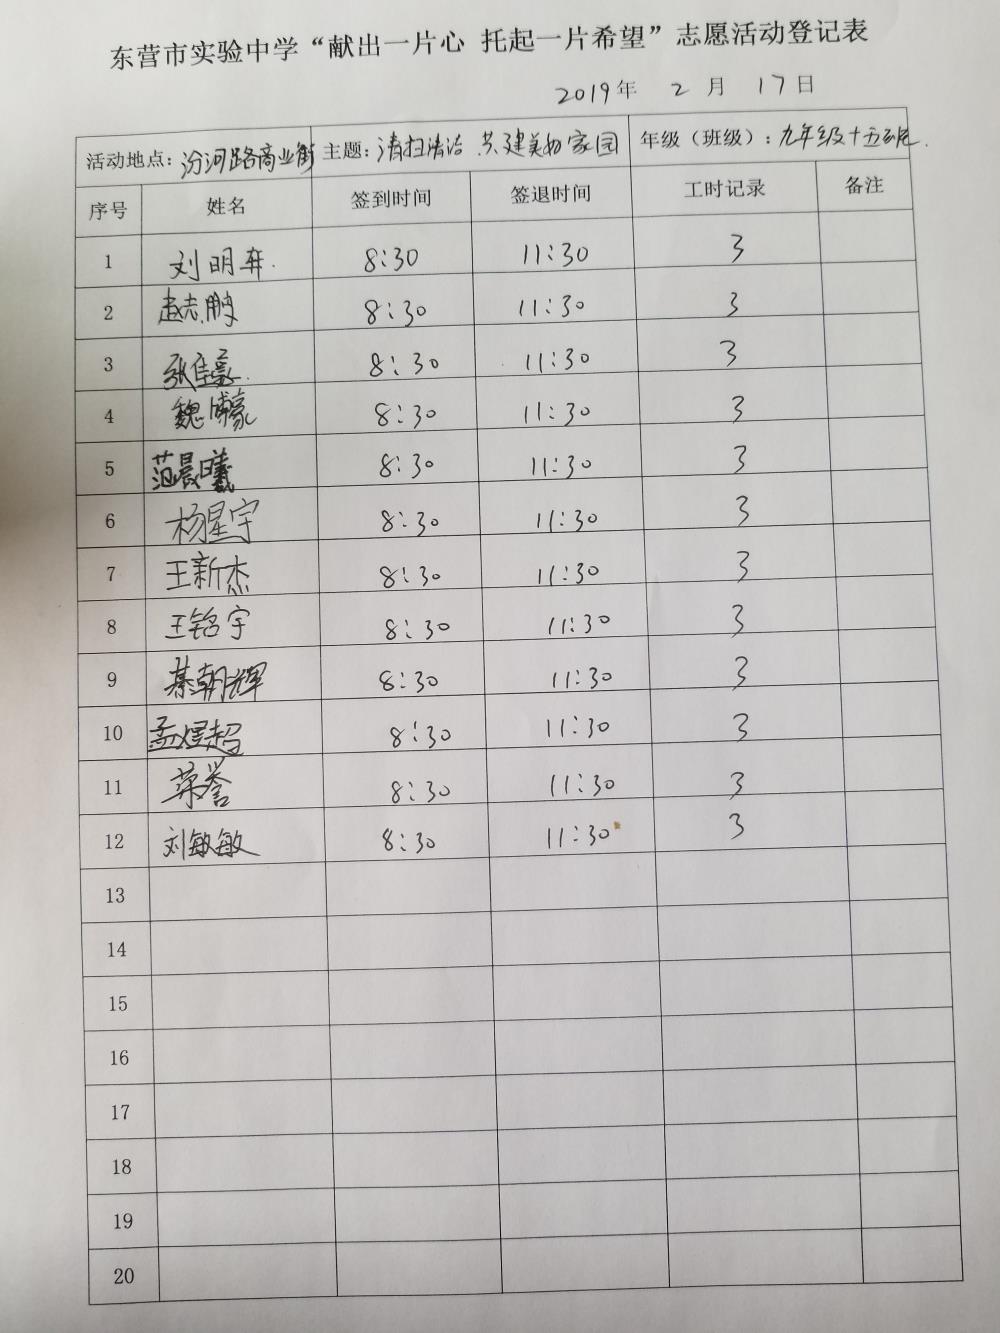 东营市实验中学“献出一片心 托起一片希望”志愿活动登记表
2019年 2 月 17日
活动地点：汾河路商业街 主题：清扫清洁 共建美好家园 年级（班级）：九年级十五班
序号 姓名 签到时间 签退时间 工时记录 备注
1 刘明弈 8:30 11:30 3
2 赵志鹏 8:30 11:30 3
3 张佳豪 8:30 11:30 3
4 魏博豪 8:30 11:30 3
5 范晨曦 8:30 11:30 3
6 杨星宇 8:30 11:30 3
7 王新杰 8:30 11:30 3
8 王铭宇 8:30 11:30 3
9 綦朝辉 8:30 11:30 3
10 孟煜超 8:30 11:30 3
11 荣誉 8:30 11:30 3
12 刘敏敏 8:30 11:30 3
13
14
15
16
17
18
19
20